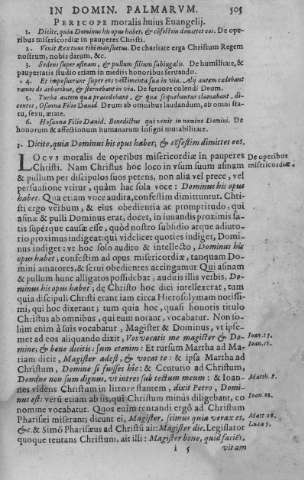 IN DOMIN. PALMARVM. 505
PERICOPE moralis huius Euangelij.
1. Dicite, quia Dominus his opus habet, & cōfestim dimittet eos. De ope-
ribus misericordiæ in pauperes Christi.
2. Venit Rex tuus tibi mansuetus. De charitate erga Christum Regem
nostrum, nobis in datum, &c.
3. Sedens super asinam, & pullum filium subiugalis. De humilitate, &
paupertatis studio etiam in medijs honoribus seruando.
4. Et imposuerunt super eos vestimenta sua in via. Alij autem cædebant
ramos de arboribus, & sternebant in via. De feruore colendi Deum.
5. Turbæ autem quæ præcedebant, & quæ sequebantur clamabant, di-
centes, Osanna Filio Dauid. Deum ab omnibus laudandum, ab omni sta-
tu, sexu, ætate.
6. Hosanna Filio Dauid. Benedictus qui venit in nomine Domini. De
honorum & affectionum humanarum insigni mutabilitate.
1. Dicite, quia Dominus his opus habet, & cōfestim dimittet eos.
LOCVS moralis de operibus misericordiæ in pauperes
Christi. Nam Christus hoc loco in vsum suum asinam
& pullum per discipulos suos petens, non alia vel prece, vel
persuasione vtitur, quàm hac sola voce: Dominus his opus
habet. Qua etiam voce audita, confestim dimittuntur. Chri-
sti ergo verbum, & eius obedientia ac promptitudo, qui
asinæ & pulli Dominus erat, docet, in iuuandis proximis sa-
tis supérque causæ esse, quòd nostro subsidio atque adiuto-
rio proximus indigeat: qui videlicet quoties indiget, Domi-
nus indiget: vt hoc solo audito & intellecto, Dominus his
opus habet, confestim ad opus misericordiæ, tanquam Do-
mini amatores, & serui obedientes accingamur. Qui asinam
& pullum hunc alligatos possidebat, auditis illis verbis, Do-
minus his opus habet; de Christo hoc dici intellexerat, tam
quia discipuli Christi erant circa Hierosolymam notissi-
mi, qui hoc dixerant; tum quia hoc, quasi honoris titulo
Christus ab omnibus, qui eum norant, vocabatur. Non so-
lùm enim à suis vocabatur, Magister & Dominus, vt ipse-
met ad eos aliquando dixit, Vos vocatis me magister & Do-
mine, & bene dicitis: sum etenim: Et rursum Martha ad Ma-
riam dicit, Magister adest, & vocat te: & ipsa Martha ad
Christum, Domine si fuisses hic: & Centurio ad Christum,
Domine non sum dignus, vt intres sub tectum meum: & Ioan-
nes videns Christum in littore stantem, dicit Petro, Domi-
nus est: verùm etiam ab iis, qui Christum minùs diligebant, eo
nomine vocabatur. Quos enim tentandi ergô ad Christum
Pharisæi miserant; ei dicunt, Magister, scimus quia verax es,
&c. & Simō Pharisæus ad Christū ait: Magister dic. Legislator
quoque tentans Christum, ait illi: Magister bone, quid faciēs,
i 5 vitam
De operibus
misericordiæ.
Ioan. 13.
Ioan. 11.
Matth. 8.
Ioan. 21.
Matt 22.
Luc. 7.